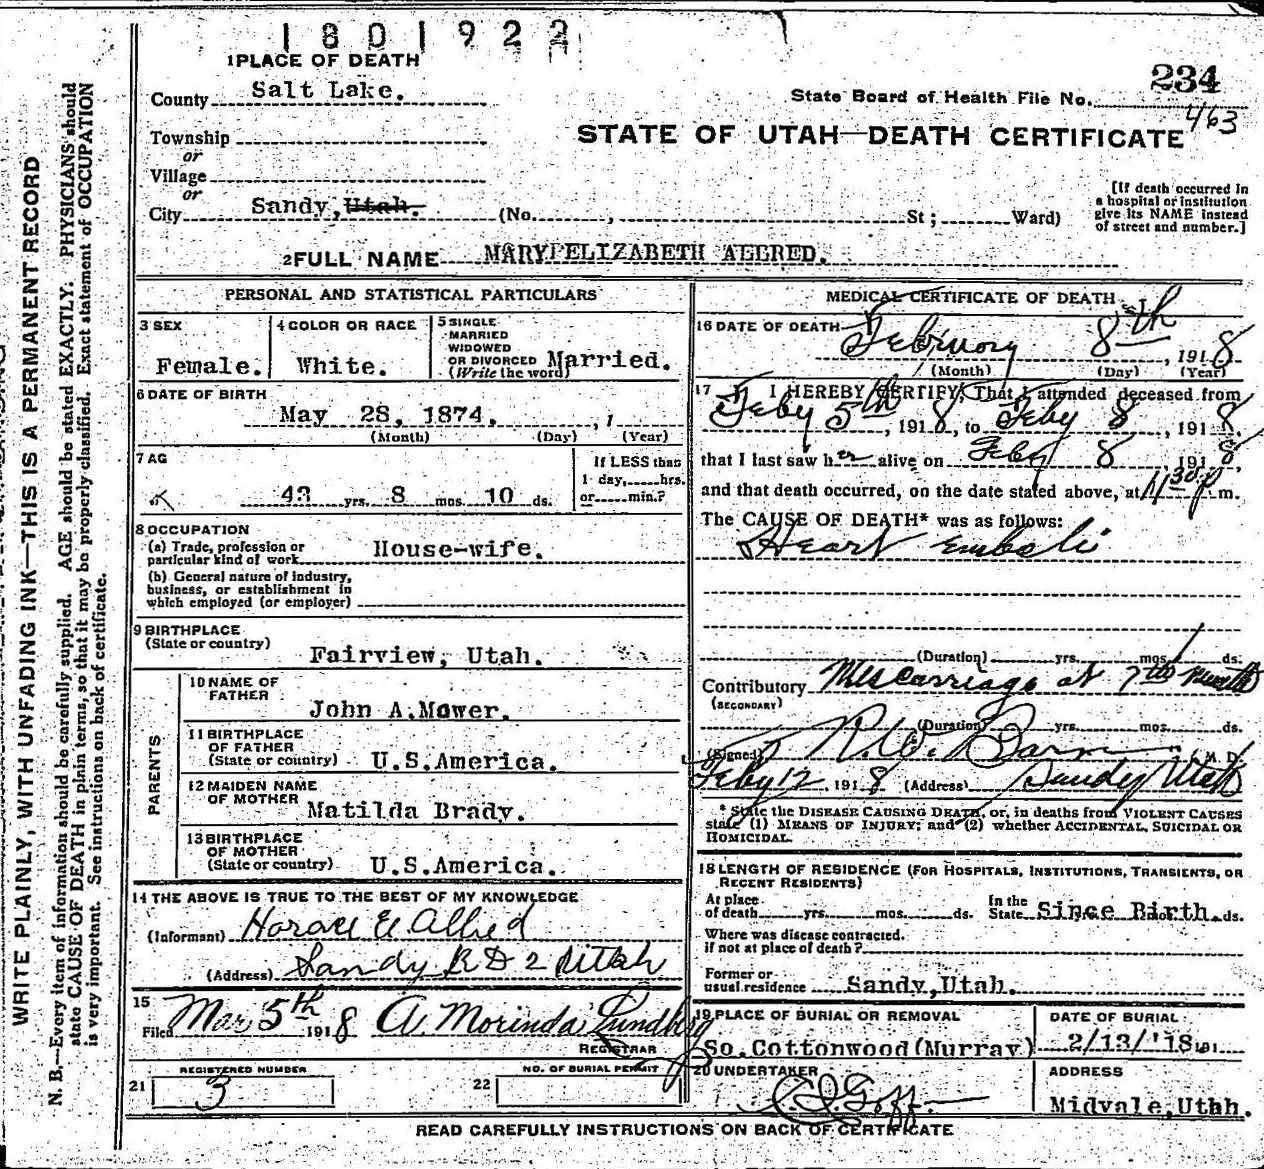 1801922
1 PLACE OF DEATH
County Salt Lake.
234
State Board of Health File No.
463
Township
or
STATE OF UTAH—DEATH CERTIFICATE
Village
or
City Sandy, Utah. (No. , St; Ward)
[If death occurred in
a hospital or institution
give its NAME instead
of street and number.]
2 FULL NAME MARY ELIZABETH ALLRED.
PERSONAL AND STATISTICAL PARTICULARS
3 SEX
Female.
4 COLOR OR RACE
White.
5 SINGLE
MARRIED
WIDOWED
OR DIVORCED
(Write the word) Married.
6 DATE OF BIRTH
May 28, 1874, , 1
(Month) (Day) (Year)
7 AG
43 yrs. 8 mos. 10 ds.
If LESS than
1 day, hrs.
or min.?
8 OCCUPATION
(a) Trade, profession or
particular kind of work House-wife.
(b) General nature of industry,
business, or establishment in
which employed (or employer)
9 BIRTHPLACE
(State or country)
Fairview, Utah.
PARENTS
10 NAME OF
FATHER
John A. Mower.
11 BIRTHPLACE
OF FATHER
(State or country) U.S.America.
12 MAIDEN NAME
OF MOTHER
Matilda Brady.
13 BIRTHPLACE
OF MOTHER
(State or country) U.S.America.
14 THE ABOVE IS TRUE TO THE BEST OF MY KNOWLEDGE
(Informant) Horace E Allred
(Address) Sandy R D 2 Utah
15
Filed Mar 5th 1918 A. Morinda Lundberg
REGISTRAR
REGISTERED NUMBER
21 3
NO. OF BURIAL PERMIT
22
MEDICAL CERTIFICATE OF DEATH
16 DATE OF DEATH
February 8th, 1918
(Month) (Day) (Year)
17 I HEREBY CERTIFY, That I attended deceased from
Feby 5th, 1918, to Feby 8, 1918,
that I last saw her alive on Feby 8, 1918,
and that death occurred, on the date stated above, at 11 30 p m.
The CAUSE OF DEATH* was as follows:
Heart emboli
(Duration) yrs. mos. ds.
Contributory Miscarriage at 7th month
(SECONDARY)
(Duration) yrs. mos. ds.
(Signed) R. W. M. D.
Feby 12, 1918 (Address) Sandy Utah
* State the DISEASE CAUSING DEATH, or, in deaths from VIOLENT CAUSES
state (1) MEANS OF INJURY; and (2) whether ACCIDENTAL, SUICIDAL OR
HOMICIDAL.
18 LENGTH OF RESIDENCE (FOR HOSPITALS, INSTITUTIONS, TRANSIENTS, OR
RECENT RESIDENTS)
At place
of death yrs. mos. ds.
In the
State Since Birth. ds.
Where was disease contracted.
if not at place of death?
Former or
usual residence Sandy, Utah.
19 PLACE OF BURIAL OR REMOVAL
So. Cottonwood (Murray)
DATE OF BURIAL
2/13/'18. 191
20 UNDERTAKER
Goff.
ADDRESS
Midvale, Utah.
READ CAREFULLY INSTRUCTIONS ON BACK OF CERTIFICATE
WRITE PLAINLY, WITH UNFADING INK—THIS IS A PERMANENT RECORD
N. B.—Every item of information should be carefully supplied. AGE should be stated EXACTLY. PHYSICIANS should
state CAUSE OF DEATH in plain terms, so that it may be properly classified. Exact statement of OCCUPATION
is very important. See instructions on back of certificate.